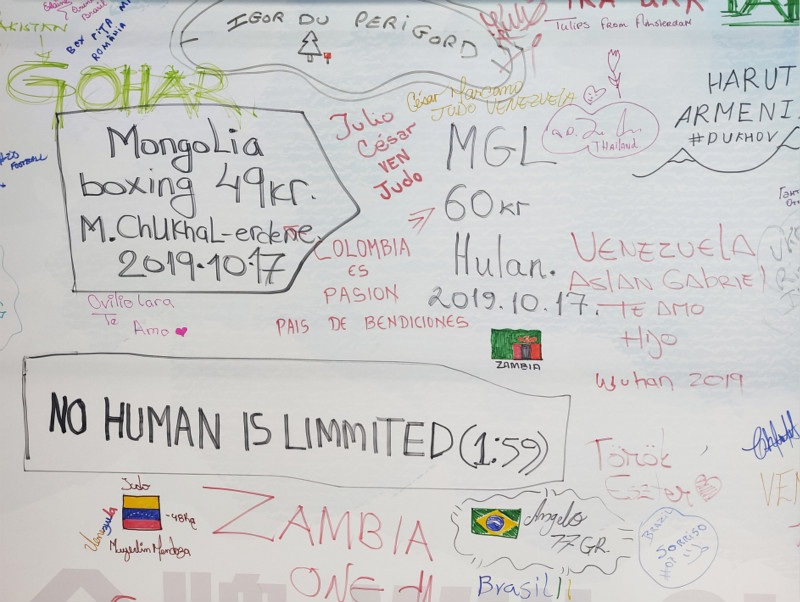 IGOR DU PERIGORD
Tulips from Amsterdam
BOX PITA
ROMÂNIA
GOHAR
HARUT
ARMENI
#DUKHOV
Mongolia
boxing 49kr.
M.Chukhal-erdene
2019.10.17
Julio
César
VEN
Judo
César Marcano
JUDO VENEZUELA
MGL
60kr
Hulan.
2019.10.17.
THailand
COLOMBIA
ES
PASION
PAIS DE BENDICIONES
Ovilio Lara
Te
Amo
VENEZUELA
ASLAN GABRIEL
TE AMO
HIJO
Wuhan 2019
ZAMBIA
NO HUMAN IS LIMMITED (1:59)
Török
Eszter
VEN
Judo
Venezuela
-48Kg
ZAMBIA
ONE
Angelo
77 GR.
Brasil
BRAZIL
SORRISO